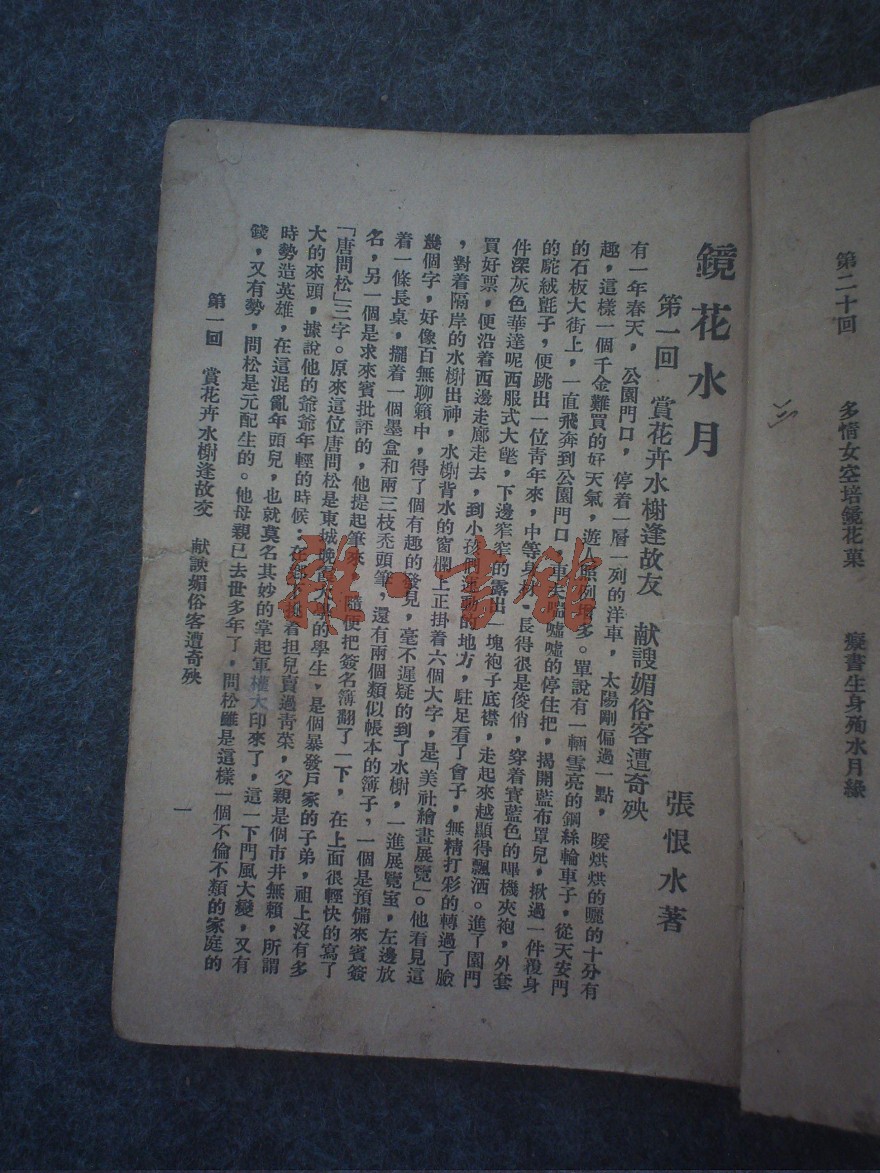 第二十回　多情女空培鏡花菓　癡書生身殉水月緣
鏡花水月
張恨水著
第一回　賞花卉水榭逢故友　献諛媚俗客遭奇殃
有一年春天，公園門口，停着一層一列的洋車，太陽剛偏過一點，暖烘烘的曬的十分有
趣，這樣一個千金難買的好天氣，遊人照例增多。單說有一輛雪亮的鋼絲輪車子，從天安門
的石板大街上，一直飛奔到公園門口，車夫噓噓的停住把，揭開藍布罩兒，掀過一件覆身
的駝絨氈子，便跳出一位靑年來，中等身材，長得很是俊俏，穿着寳藍色的嗶機夾袍，外套
件深灰色華達呢西服式大氅，下邊窄窄的露出一塊袍子底襟，走起來越顯得飄洒。進了園門
買好票，便沿着西邊走廊走去，到小孩們運動的地方，駐足看了會子，無精打彩的轉過了臉
，對着隔岸的水榭出神，水榭背水的窗欄上正掛着六個大字，是「美社繪畫展覽」。他看見這
幾個字，好像百無聊籟中，得了個有趣的發見，毫不遲疑的到了水榭，一進展覽室，左邊放
着一條長桌，擺着一個墨盒和兩三枝禿頭筆，還有兩個類似帳本的簿子，一個是預備來賓簽
名，另一個是求來賓批評的，他提起筆來，隨便把簽名簿翻了一下，在上面很輕快的寫了
「唐問松」三字。原來這位唐問松是東城大學的學生，是個暴發戶家的子弟，祖上沒有多
大的來頭，據說他的爺爺年輕的時候，在着担兒賣過靑菜，父親是個市井無賴，所謂
時勢造英雄，在這混亂年頭兒，也就莫名其妙的掌起軍權大印來了，這一下門風大變，又有
錢，又有勢，問松是元配生的。他母親已去世多年了，問松雖是這樣一個不倫不類的家庭的
第一回　賞花卉水榭逢故交　献諛媚俗客遭奇殃
一
雜·書館